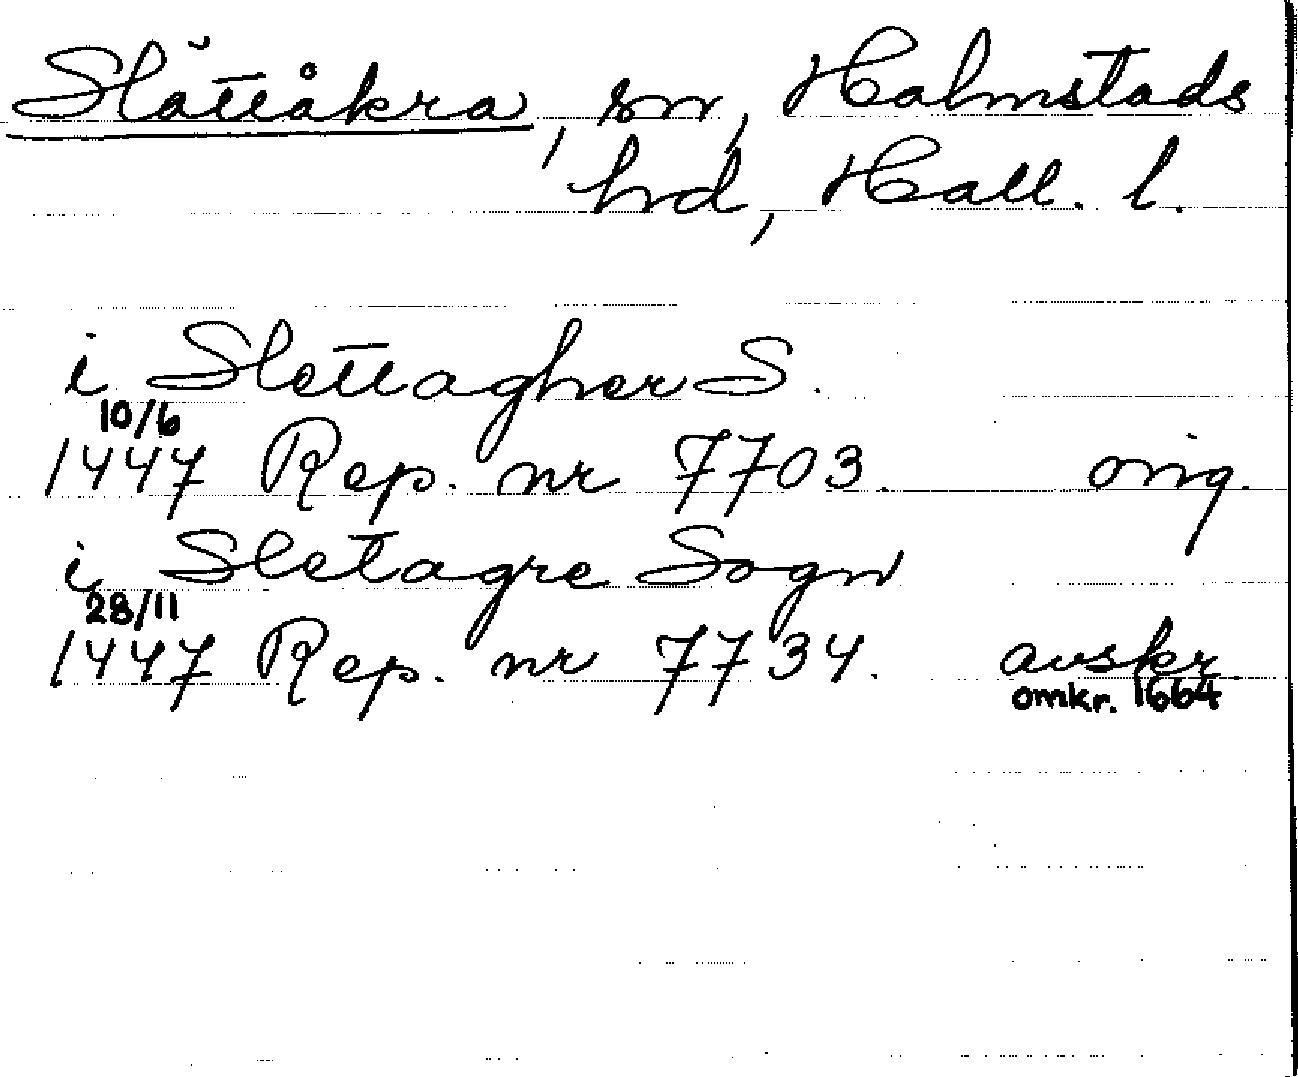 Slättåkra, sn, Halmstads
hd, Hall. l.
i Slettagher S.
10/6
1447 Rep. nr 7703. orig.
i Sletagre Sogn
28/11
1447 Rep. nr 7734. avskr.
omkr. 1664